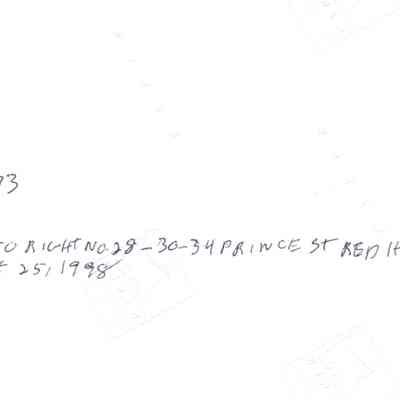 3
TO RIGHT NO. 28-30-34 PRINCE ST RED H
25, 1998